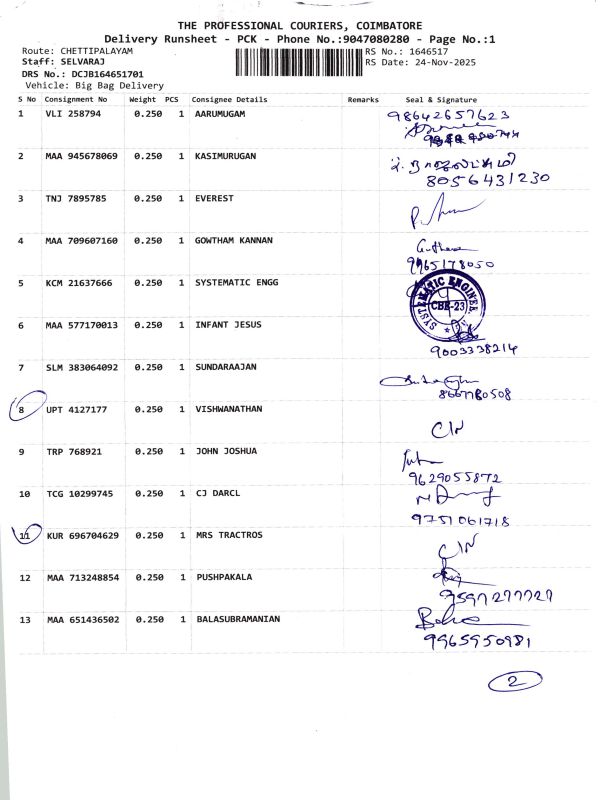 THE PROFESSIONAL COURIERS, COIMBATORE
Delivery Runsheet - PCK - Phone No.:9047080280 - Page No.:1
Route: CHETTIPALAYAM RS No.: 1646517
Staff: SELVARAJ RS Date: 24-Nov-2025
DRS No.: DCJB164651701
Vehicle: Big Bag Delivery
S No Consignment No Weight PCS Consignee Details Remarks Seal & Signature
1 VLI 258794 0.250 1 AARUMUGAM 98642657623
2 MAA 945678069 0.250 1 KASIMURUGAN
8056431230
3 TNJ 7895785 0.250 1 EVEREST
4 MAA 709607160 0.250 1 GOWTHAM KANNAN
9965178050
5 KCM 21637666 0.250 1 SYSTEMATIC ENGG
SYSTEMATIC ENGINEER
CBE-23
6 MAA 577170013 0.250 1 INFANT JESUS
9003338214
7 SLM 383064092 0.250 1 SUNDARAAJAN
8667780508
8 UPT 4127177 0.250 1 VISHWANATHAN
C/N
9 TRP 768921 0.250 1 JOHN JOSHUA
9629055872
10 TCG 10299745 0.250 1 CJ DARCL
9751061718
11 KUR 696704629 0.250 1 MRS TRACTROS
C/N
12 MAA 713248854 0.250 1 PUSHPAKALA
7597277727
13 MAA 651436502 0.250 1 BALASUBRAMANIAN
9965950981
2